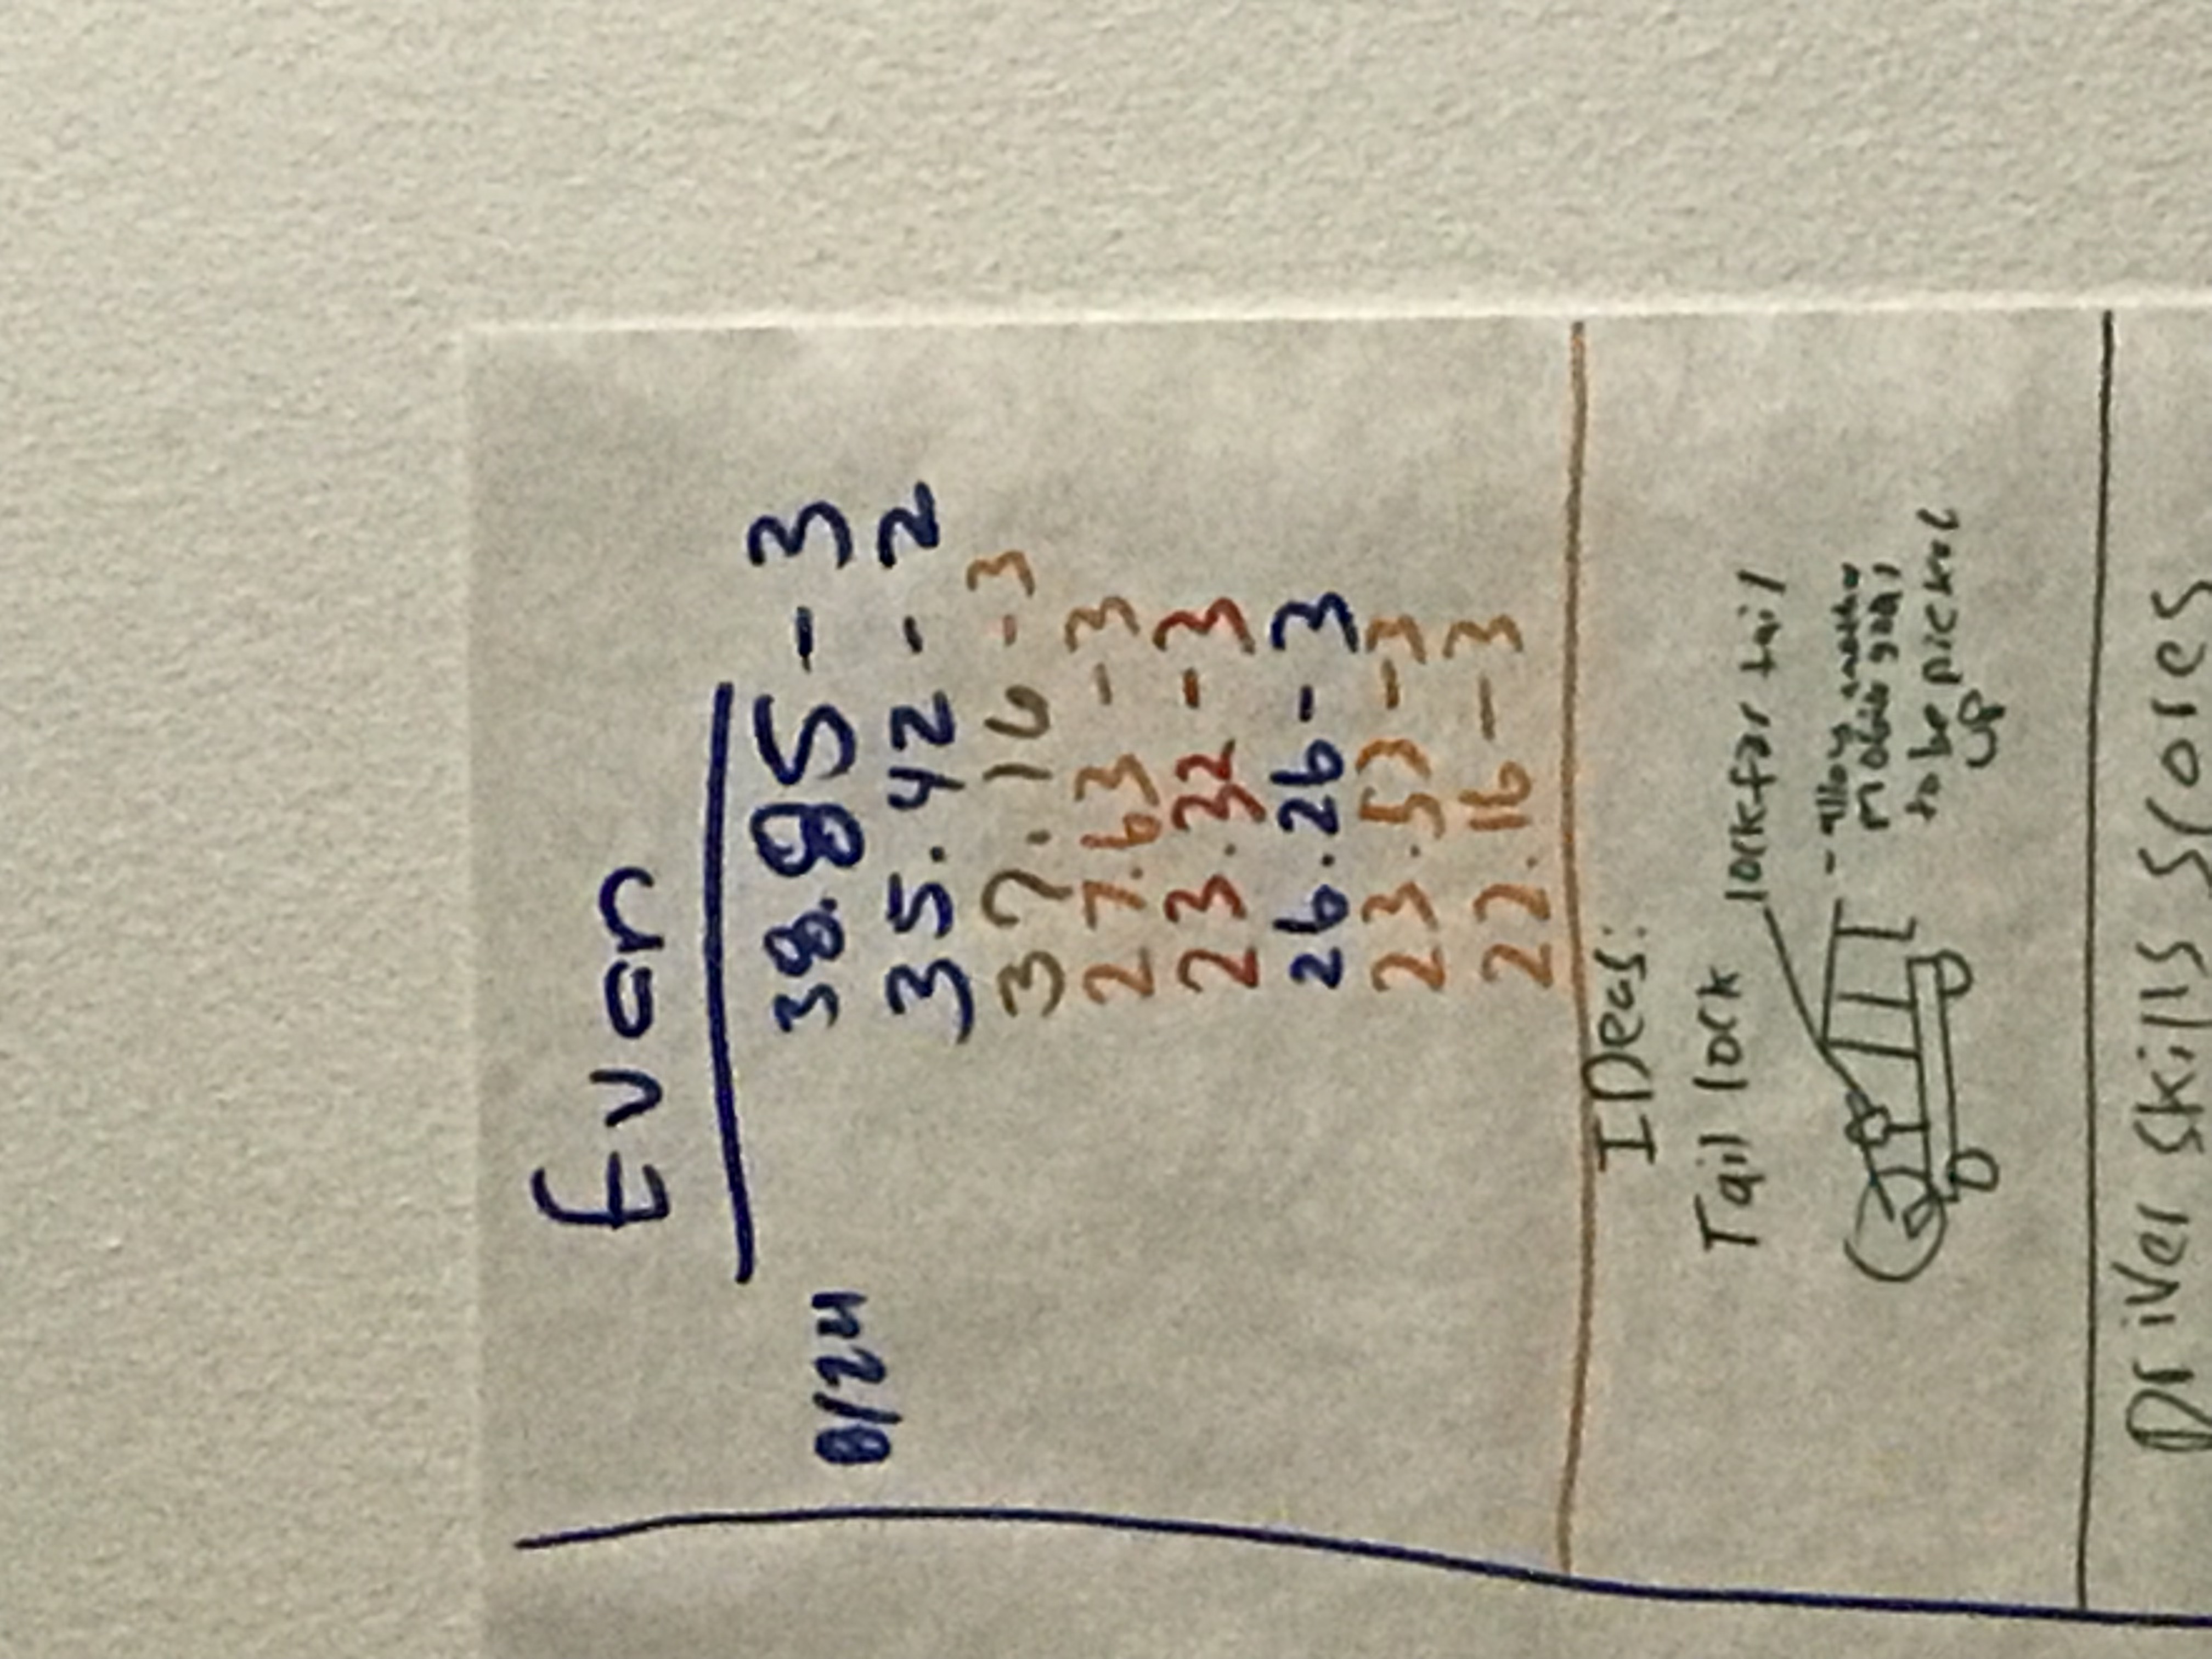 Evan
8/24
38.85 - 3
35.42 - 2
37.16 - 3
27.63 - 3
23.32 - 3
26.26 - 3
23.53 - 3
22.16 - 3
IDeas:
Tail lock
lock for tail
- allows another
mobile goal
to be picked
up
Driver skills scores